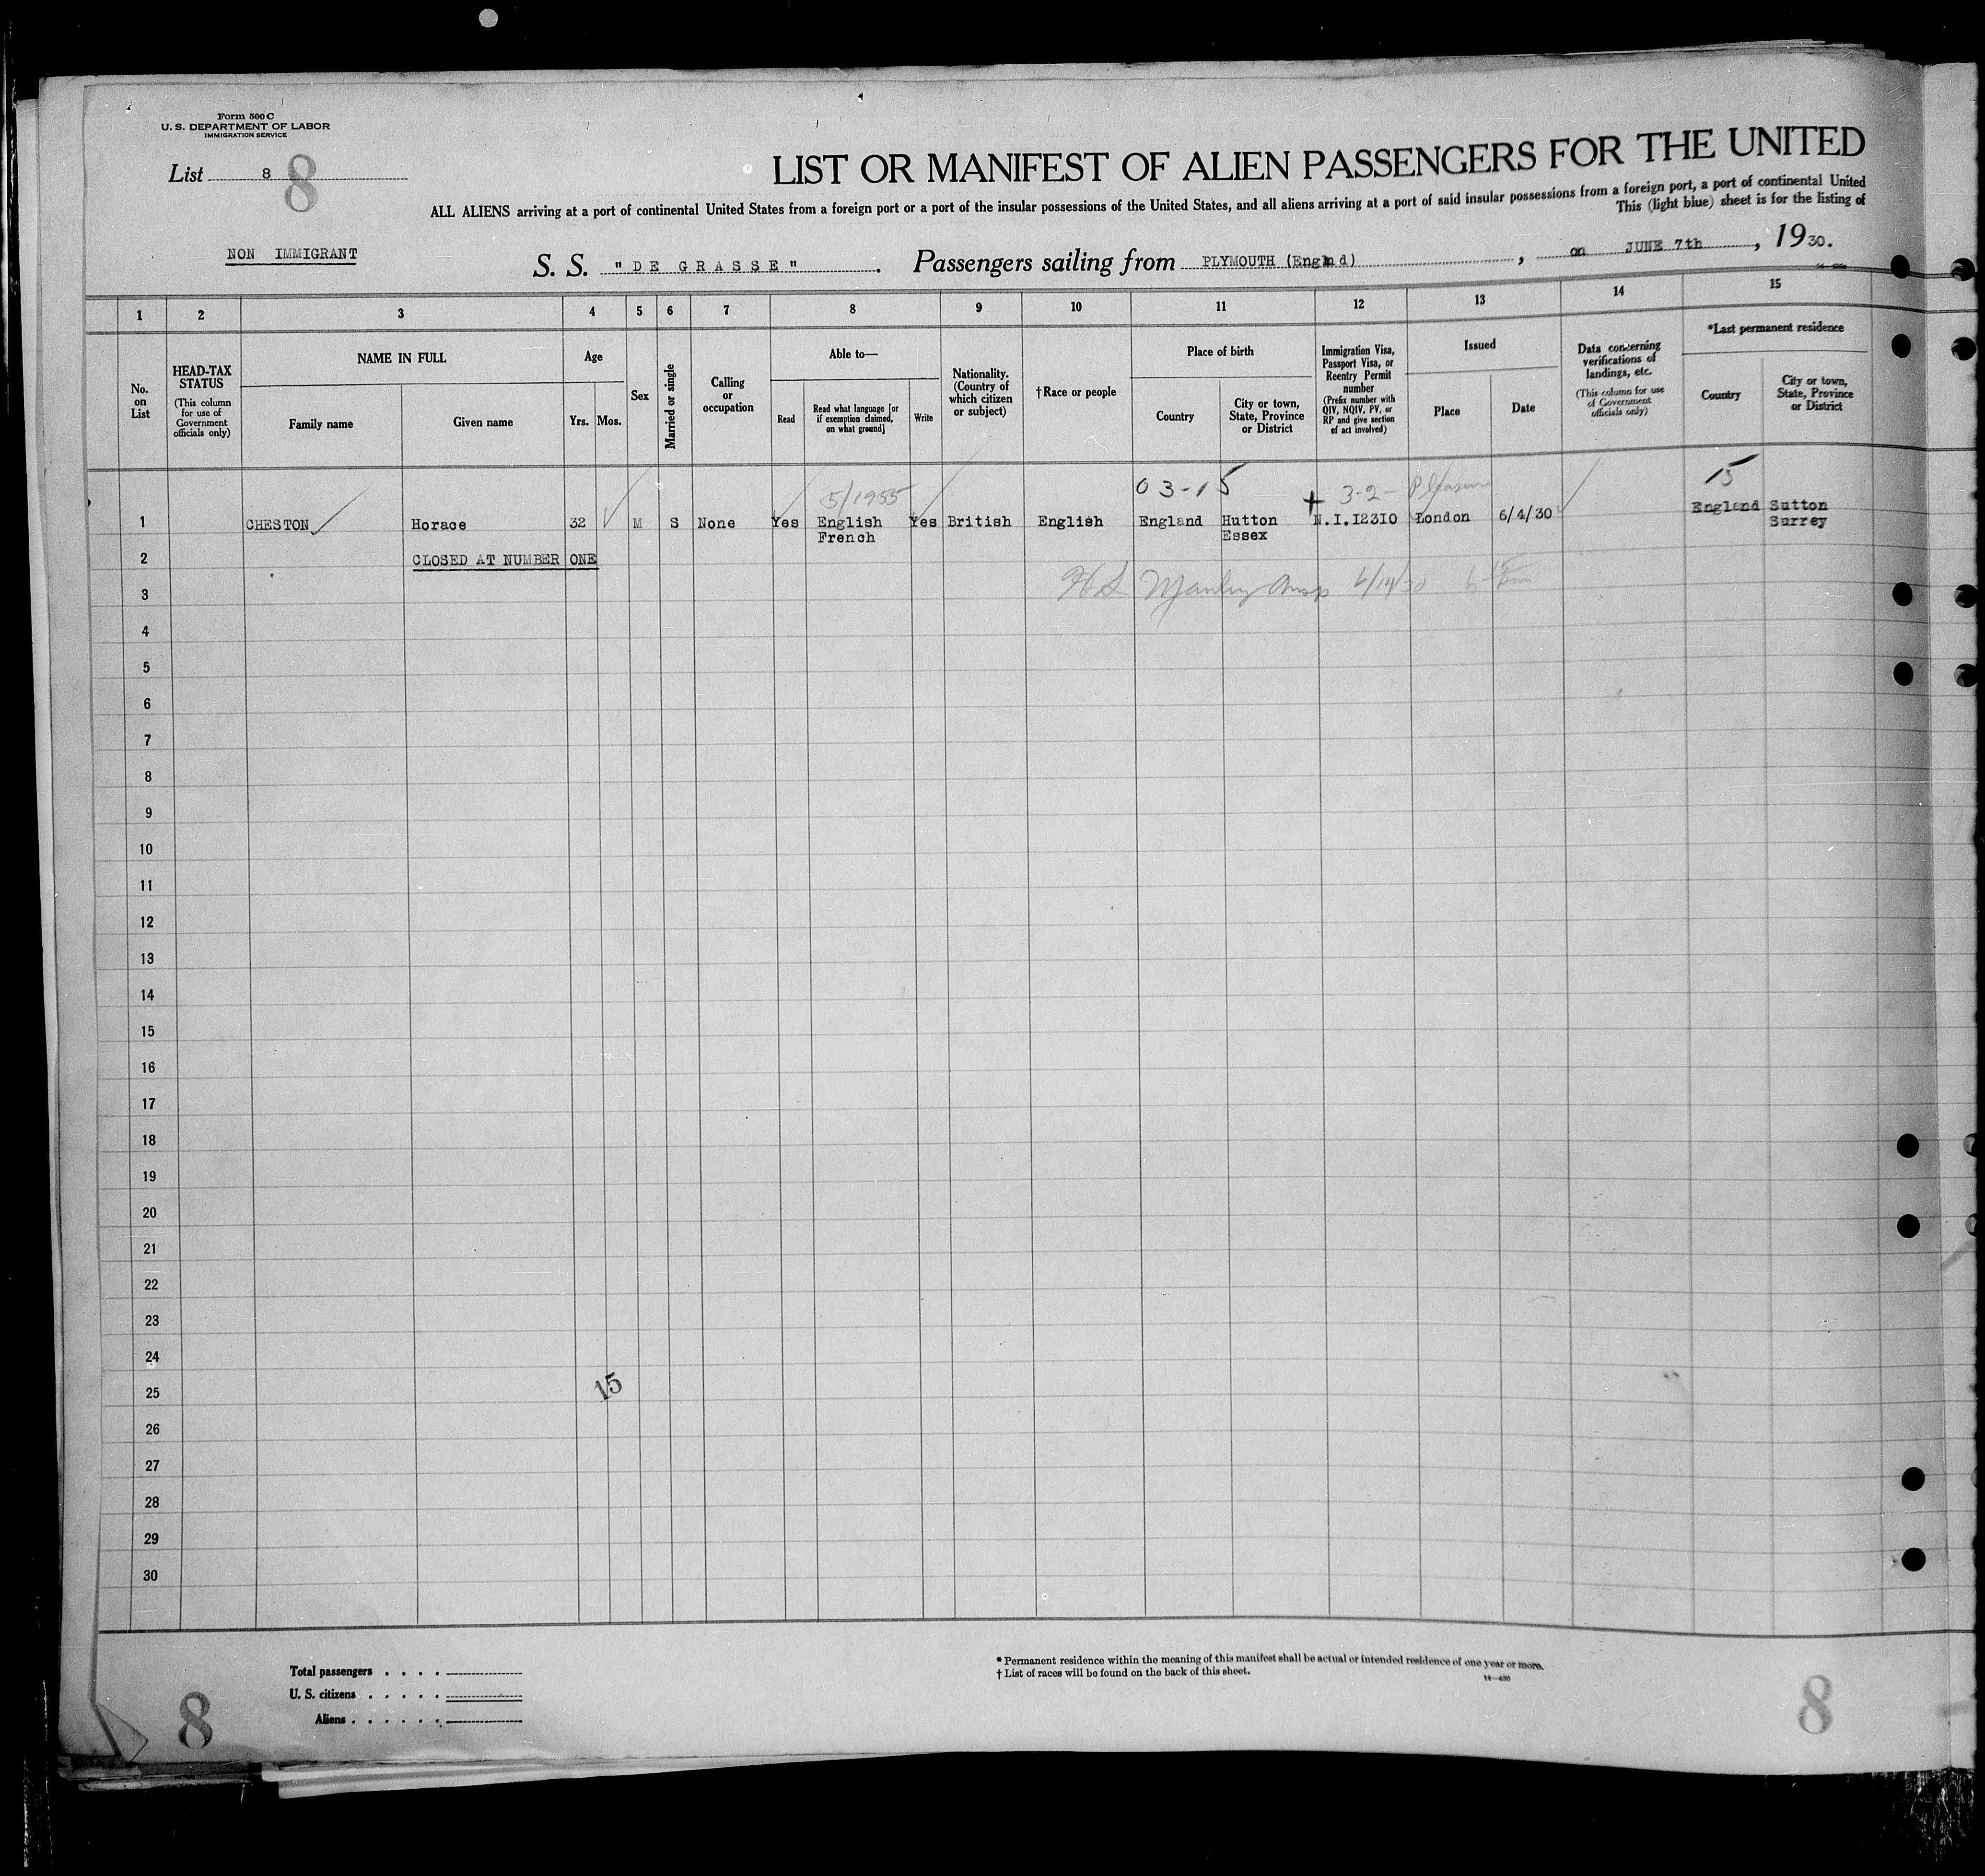 Form 500 C
U. S. DEPARTMENT OF LABOR
IMMIGRATION SERVICE
List 8 8
LIST OR MANIFEST OF ALIEN PASSENGERS FOR THE UNITED
ALL ALIENS arriving at a port of continental United States from a foreign port or a port of the insular possessions of the United States, and all aliens arriving at a port of said insular possessions from a foreign port, a port of continental United
This (light blue) sheet is for the listing of
NON IMMIGRANT
S. S. "DE GRASSE". Passengers sailing from PLYMOUTH (England), on JUNE 7th, 1930.
1 2 3 4 5 6 7 8 9 10 11 12 13 14 15
No. on List
HEAD-TAX STATUS
(This column for use of Government officials only)
NAME IN FULL
Family name
Given name
Age
Yrs. Mos.
Sex
Married or single
Calling or occupation
Able to—
Read
Read what language [or if exemption claimed, on what ground]
Write
Nationality. (Country of which citizen or subject)
†Race or people
Place of birth
Country
City or town, State, Province or District
Immigration Visa, Passport Visa, or Reentry Permit number
(Prefix number with QIV, NQIV, PV, or RP and give section of act involved)
Issued
Place
Date
Data concerning verifications of landings, etc.
(This column for use of Government officials only)
*Last permanent residence
Country
City or town, State, Province or District
5/1955 03-15 3-2- Pleasure 15
1 CHESTON Horace 32 M S None Yes English Yes British English England Hutton N.I.12310 London 6/4/30 England Sutton
French Essex Surrey
2 CLOSED AT NUMBER ONE
3 H S Manley Insp 6/14/30
4
5
6
7
8
9
10
11
12
13
14
15
16
17
18
19
20
21
22
23
24
25 15
26
27
28
29
30
Total passengers . . . .
U. S. citizens . . . . .
Aliens . . . . . .
* Permanent residence within the meaning of this manifest shall be actual or intended residence of one year or more.
† List of races will be found on the back of this sheet.
8 8